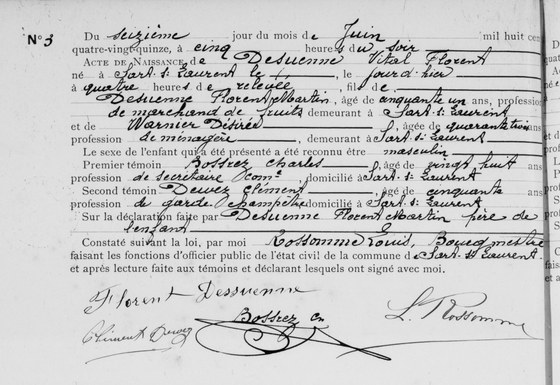 N° 3
Du seizième jour du mois de Juin mil huit cent
quatre-vingt-quinze, à cinq heures du soir
ACTE DE NAISSANCE de Desuenne Vital Florent
né à Sart-St-Laurent le, le jour d'hier
à quatre heures de relevée, fils de
Desuenne Florent Martin, âgé de cinquante un ans, profession
de marchand de fruits demeurant à Sart-St-Laurent
et de Warnier Désirée, âgée de quarante trois ans
profession de ménagère, demeurant à Sart-St-Laurent
Le sexe de l'enfant qui a été présenté a été reconnu être masculin
Premier témoin Bossrez Charles, âgé de vingt huit ans
profession de secrétaire comal, domicilié à Sart-St-Laurent
Second témoin Dewez Clément, âgé de cinquante ans
profession de garde champêtre domicilié à Sart-St-Laurent
Sur la déclaration faite par Desuenne Florent Martin père de
l'enfant
Constaté suivant la loi, par moi Rossomme Louis, Bourgmestre
faisant les fonctions d'officier public de l'état civil de la commune de Sart-St-Laurent
et après lecture faite aux témoins et déclarant lesquels ont signé avec moi.
Florent Dessuenne
Bossrez Ch
L. Rossomme
Clément Dewez